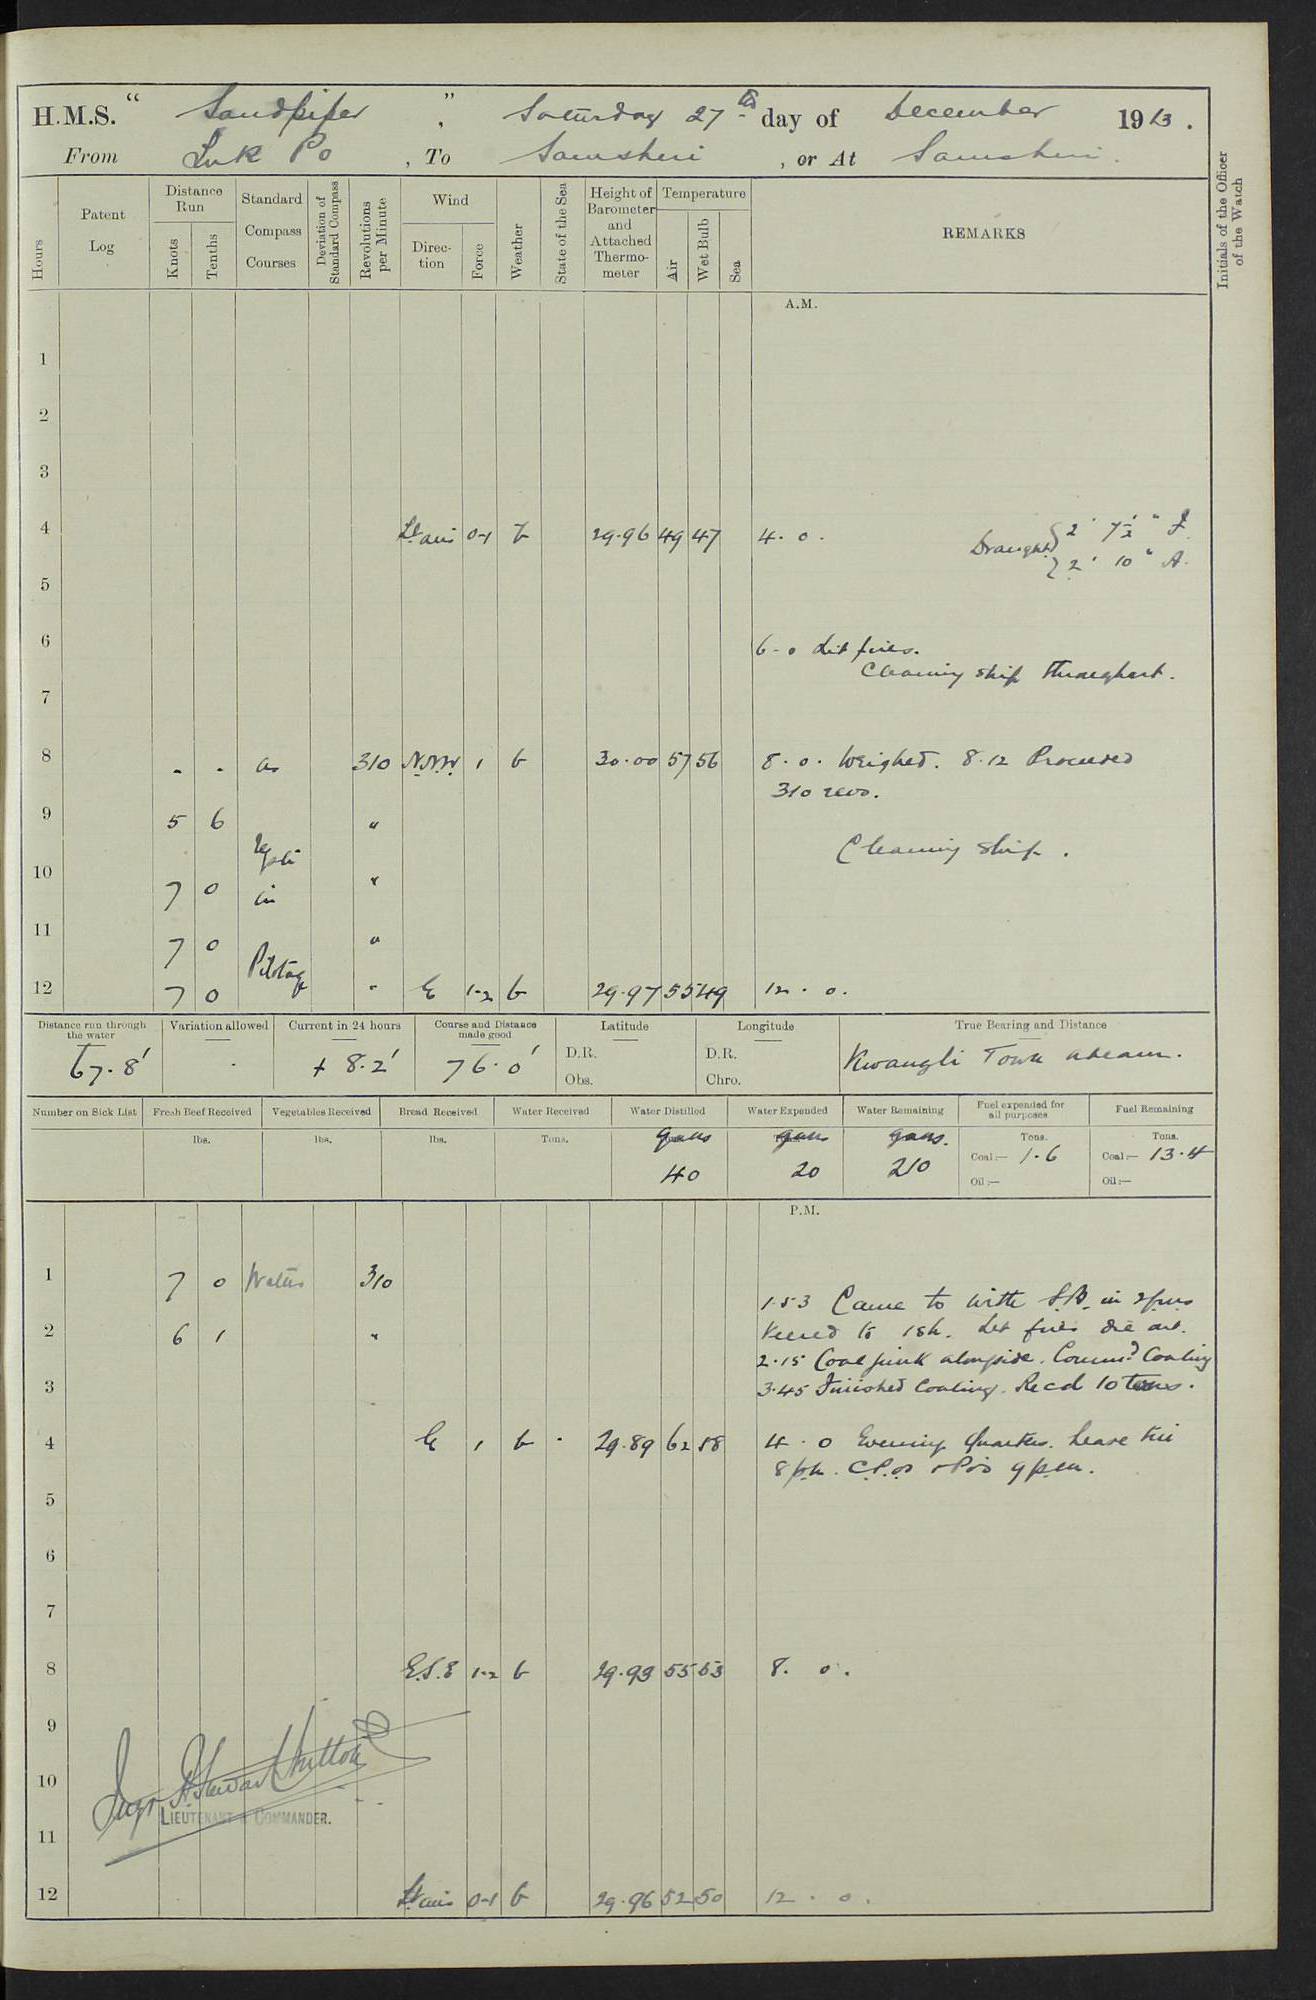 H.M.S. " Sandpiper ", Saturday 27th day of December 1913.
From Luk Po, To Samshui, or At Samshui.
Hours
Patent Log
Distance Run
Knots
Tenths
Standard Compass Courses
Deviation of Standard Compass
Revolutions per Minute
Wind
Direction
Force
Weather
State of the Sea
Height of Barometer and Attached Thermometer
Temperature
Air
Wet Bulb
Sea
REMARKS
Initials of the Officer of the Watch
A.M.
1
2
3
4 Lt airs 0-1 b 29.96 49 47 4.0. Draught { 2' 7½" F.
{ 2' 10" A.
5
6 6-0 Lit fires.
Cleaning ship throughout.
7
8 - - as 310 N.N.W. 1 b 30.00 57 56 8.0. Weighed. 8.12 Proceeded
310 revs.
9 5 6 "
Reqsti Cleaning ship.
10 7 0 in "
11 7 0 "
Pilotage
12 7 0 " E 1-2 b 29.97 55 49 12.0.
Distance run through the water 67.8'
Variation allowed -
Current in 24 hours + 8.2'
Course and Distance made good 76.0'
Latitude
D.R.
Obs.
Longitude
D.R.
Chro.
True Bearing and Distance
Kwangli Town abeam.
Number on Sick List
Fresh Beef Received lbs.
Vegetables Received lbs.
Bread Received lbs.
Water Received Tons.
Water Distilled galls 40
Water Expended galls 20
Water Remaining galls. 210
Fuel expended for all purposes Tons.
Coal:— 1.6
Oil:—
Fuel Remaining Tons.
Coal:— 13.4
Oil:—
P.M.
1 7 0 Waters 310
1.53 Came to with S.B. in 2 fms
2 6 1 " Veered to 1 sh. Let fires die out.
2.15 Coal junk alongside. Commd Coaling
3 3.45 Finished Coaling. Recd 10 tons.
4 E 1 b - 29.89 62 58 4.0 Evening Quarters. Leave till
8 p.m. C.P.Os & POs 9 p.m.
5
6
7
8 E.S.E 1-2 b 29.93 55 53 8.0.
9
10
LIEUTENANT & COMMANDER.
11
12 Lt airs 0-1 b 29.96 52 50 12.0.